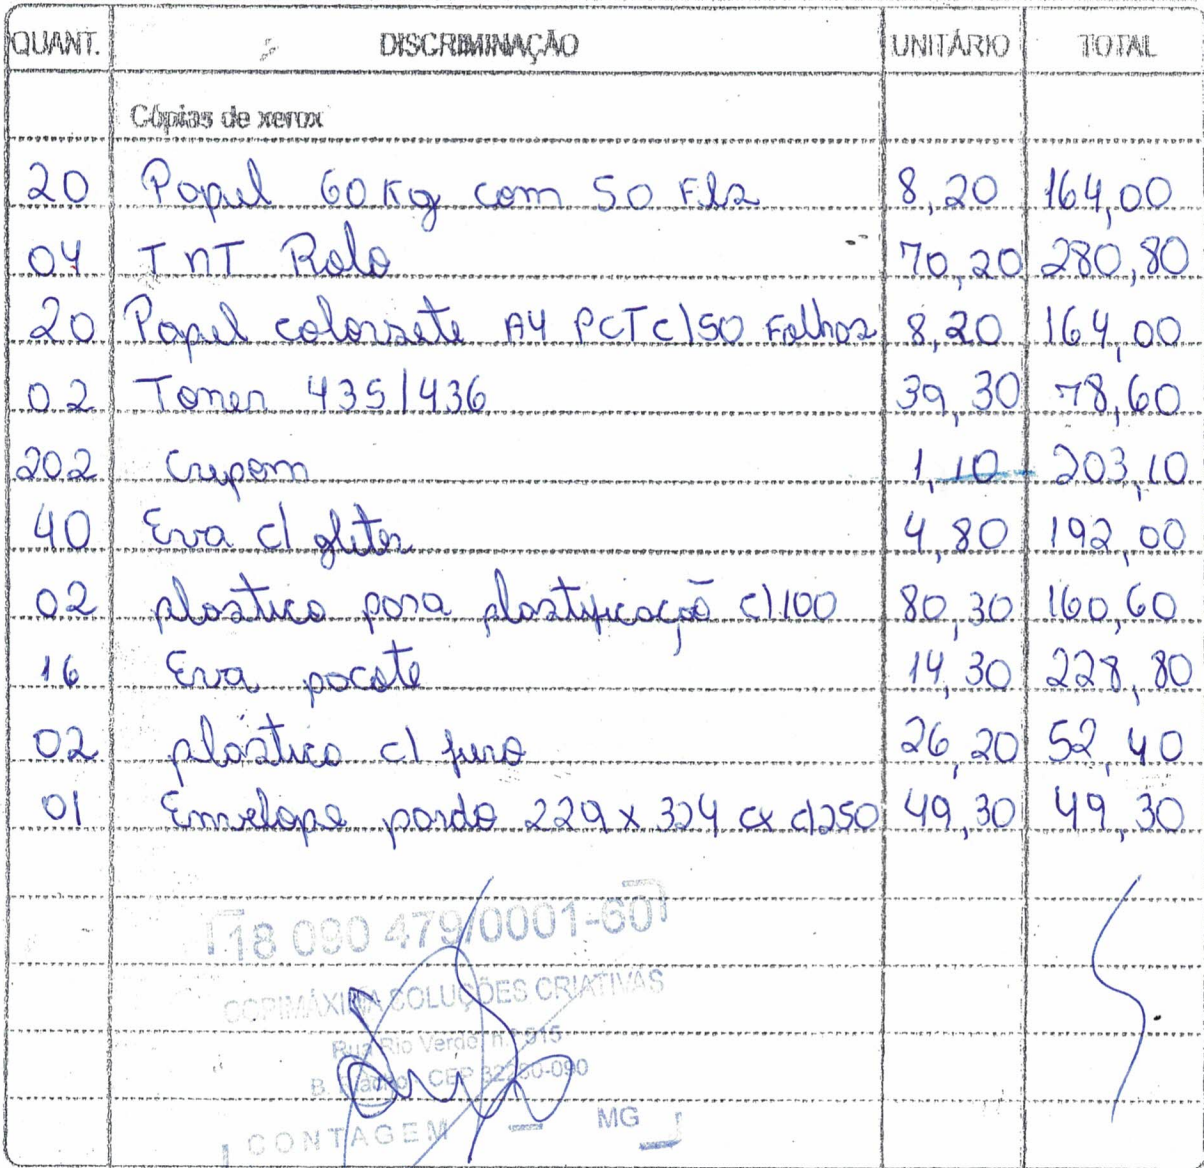 QUANT. DISCRIMINAÇÃO UNITÁRIO TOTAL
Cópias de xerox
20 Papel 60 Kg com 50 Fls 8,20 164,00
04 TNT Rolo 70,20 280,80
20 Papel colorsete A4 PCT c/50 Folhas 8,20 164,00
02 Toner 435/436 39,30 78,60
202 Crepom 1,10 203,10
40 Eva c/ gliter 4,80 192,00
02 plastico para plastificação c/100 80,30 160,60
16 Eva pacote 14,30 228,80
02 plástico c/ furo 26,20 52,40
01 Envelope pardo 229 x 324 cx c/250 49,30 49,30
18 090 479/0001-60
COPIMÁXIMA SOLUÇÕES CRIATIVAS
Rua Rio Verde, n.º 915
B. CEP 32280-090
CONTAGEM - MG